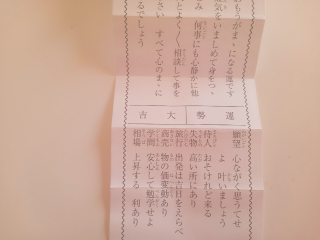 おもうがまゝになる運です
気をいましめて身をつゝ
み 何事にも心静かに他
とよく〳〵相談して事を
さい すべて心のまゝに
るでしょう
運勢 大吉
願望 心ながく思うてせよ 叶いましょう
待人 おそけれど来る
失物 高い所にあり
旅行 出発は吉日をえらべ
商売 物の価変動あり
学問 安心して勉学せよ
相場 上昇する 利あり